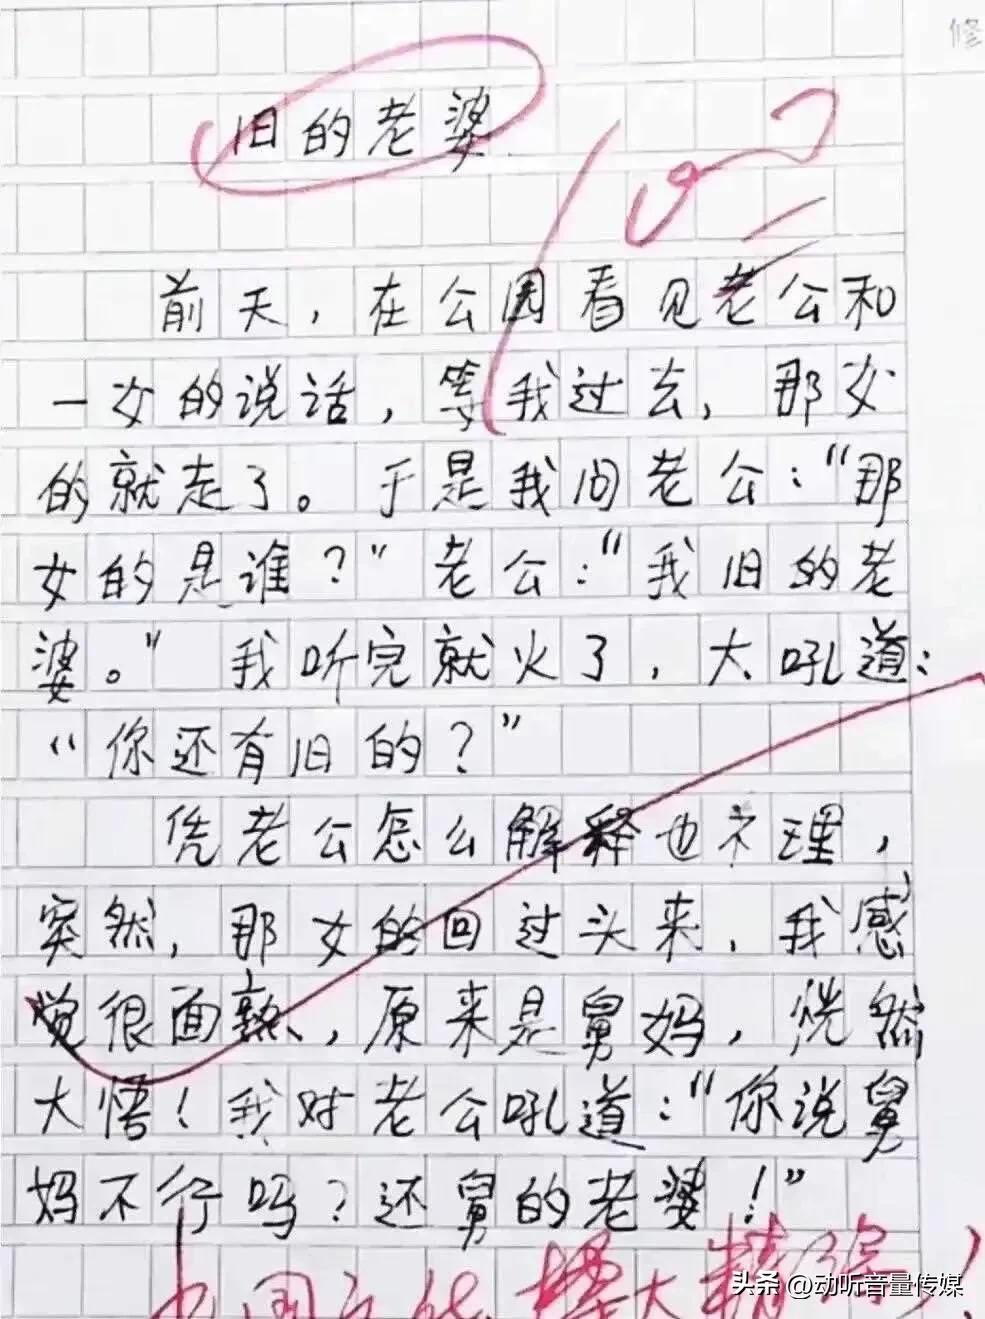 修
旧的老婆
100
前天，在公园看见老公和
一女的说话，等我过去，那女
的就走了。于是我问老公：“那
女的是谁？”老公：“我旧的老
婆。”我听完就火了，大吼道：
“你还有旧的？”
凭老公怎么解释也不理，
突然，那女的回过头来，我感
觉很面熟，原来是舅妈，恍然
大悟！我对老公吼道：“你说舅
妈不行吗？还舅的老婆！”
中国文化博大精深！
头条 @动听音量传媒